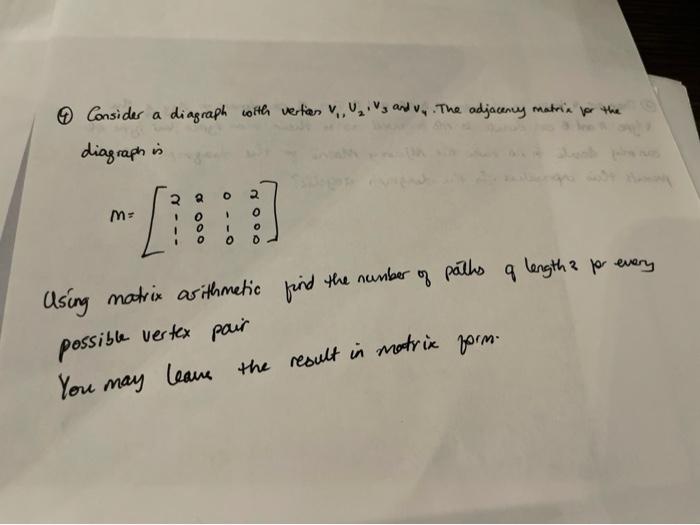 ④ Consider a diagraph with vertien V₁, V₂, V₃ and V₄. The adjacency matrix for the
diagraph is
M= [ 2 2 0 2
1 0 1 0
1 0 1 0
1 0 0 0 ]
Using matrix arithmetic find the number of paths of length 2 for every
possible vertex pair
You may leave the result in matrix form.